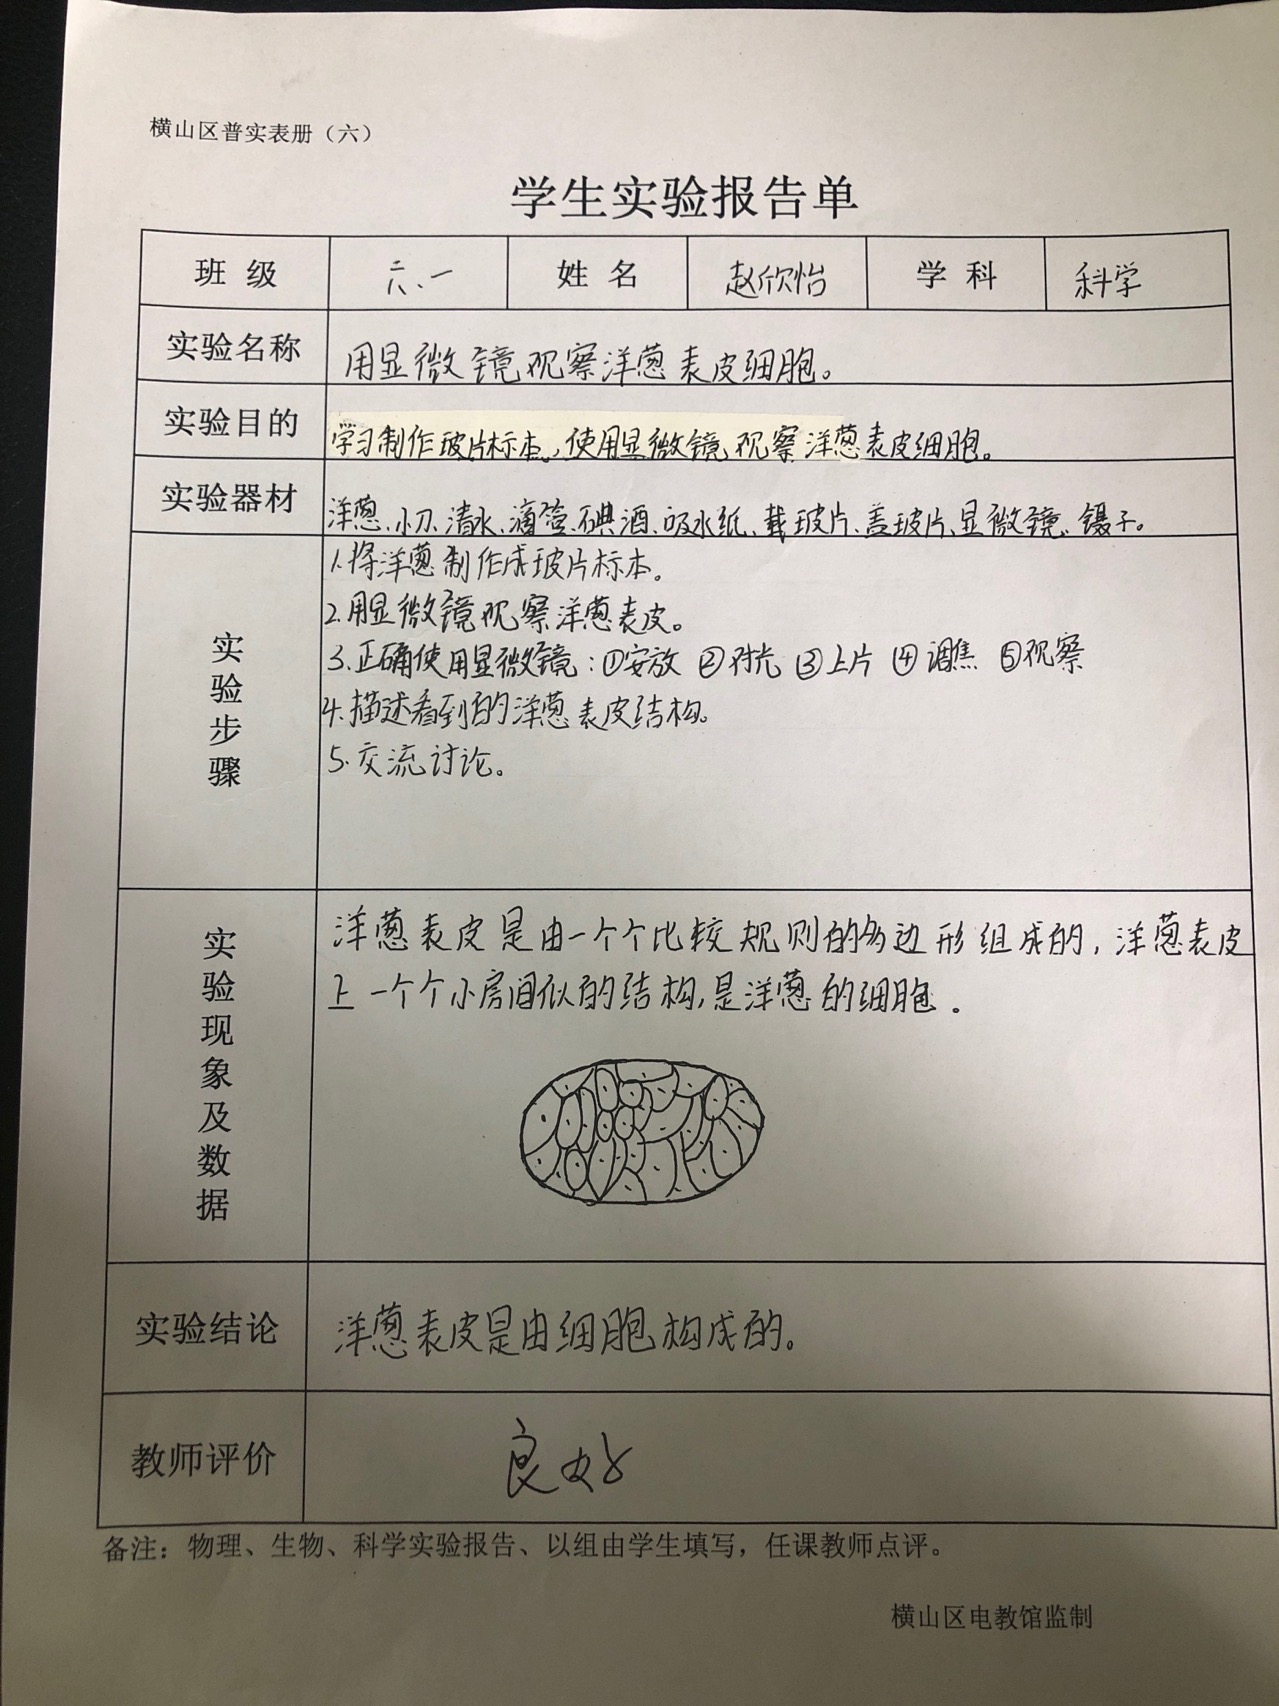 横山区普实表册（六）
学生实验报告单
班级 六、一 姓名 赵欣怡 学科 科学
实验名称 用显微镜观察洋葱表皮细胞。
实验目的 学习制作玻片标本，使用显微镜观察洋葱表皮细胞。
实验器材 洋葱、小刀、清水、滴管、碘酒、吸水纸、载玻片、盖玻片、显微镜、镊子。
实验步骤
1.将洋葱制作成玻片标本。
2.用显微镜观察洋葱表皮。
3.正确使用显微镜：①安放 ②对光 ③上片 ④调焦 ⑤观察
4.描述看到的洋葱表皮结构。
5.交流讨论。
实验现象及数据
洋葱表皮是由一个个比较规则的多边形组成的，洋葱表皮
上一个个小房间似的结构，是洋葱的细胞。
实验结论 洋葱表皮是由细胞构成的。
教师评价 良好
备注：物理、生物、科学实验报告、以组由学生填写，任课教师点评。
横山区电教馆监制